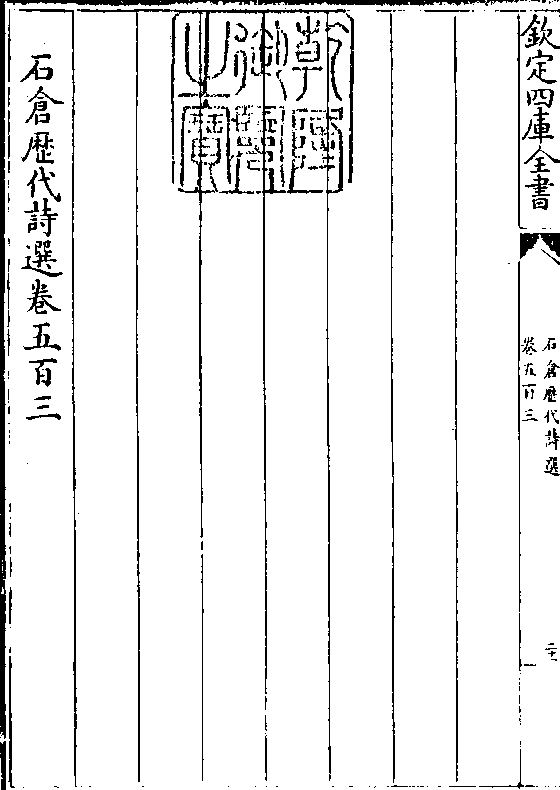 欽定四庫全書
石倉歴代詩選
卷五百三
乾隆
御覽
之寶
石倉歴代詩選卷五百三